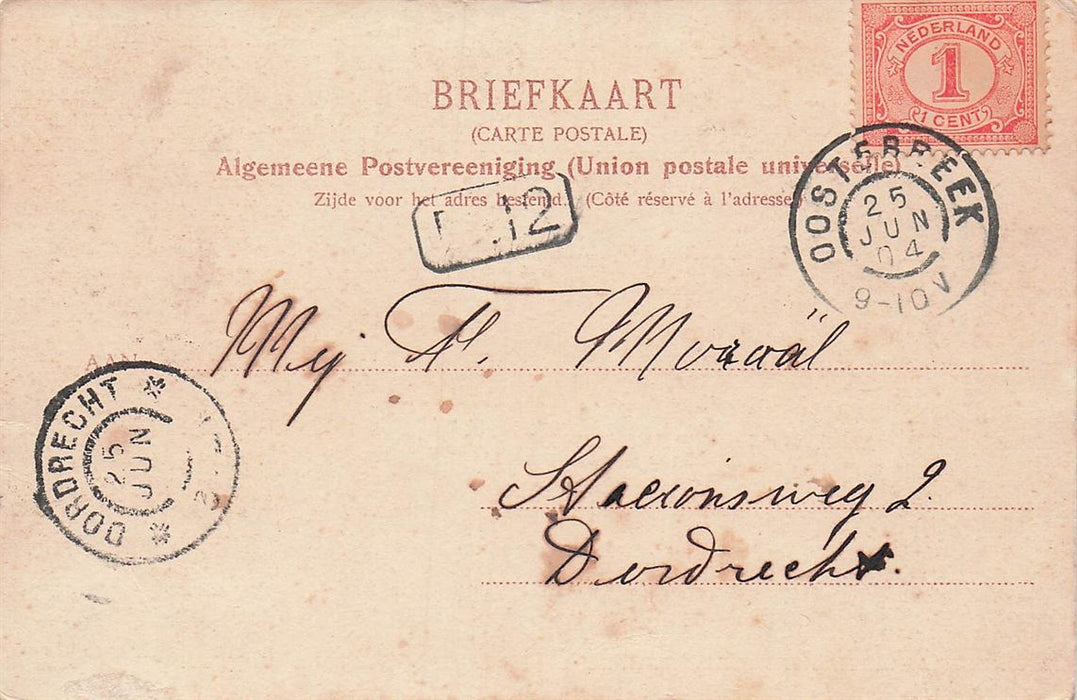 NEDERLAND
1
1 CENT
BRIEFKAART
(CARTE POSTALE)
Algemeene Postvereeniging (Union postale universelle)
Zijde voor het adres bestemd. (Côté réservé à l'adresse)
12
OOSTERBEEK
25
JUN
04
9-10V
AAN
Mej
DORDRECHT
25
JUN
Stationsweg 2.
Dordrecht.